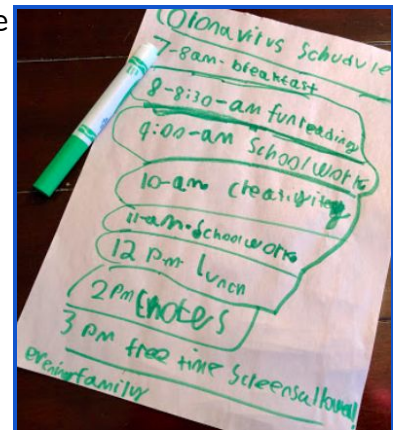 e
Coronavirus Schudule
7-8am- breakfast
8-8:30-am fun reading
9:00-am School work
10-am creativitey
11-am-school work
12 pm lunch
2pm choters
3 pm free time Screensallowed!
evening family